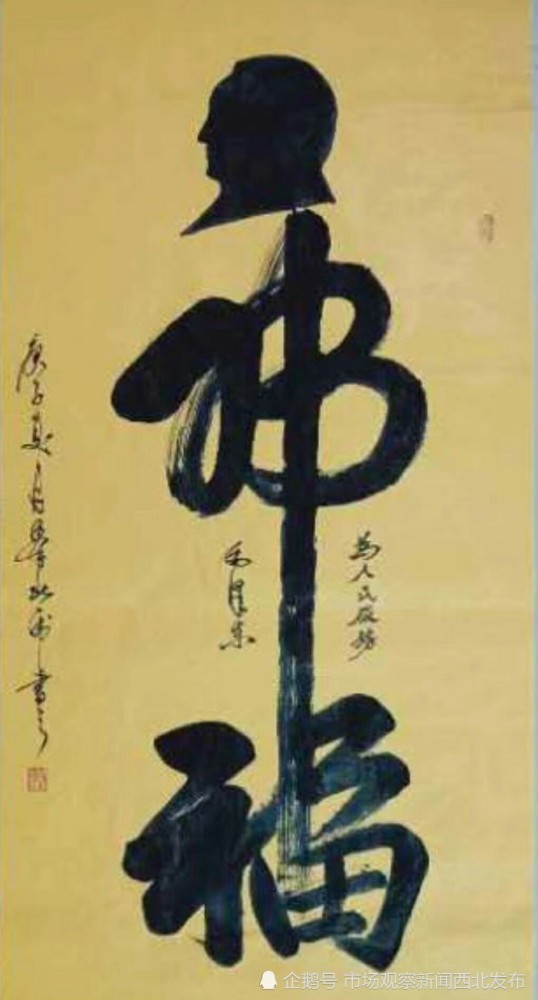 佛
福
為人民服務
毛澤東
庚子夏月 書之
企鹅号 市场观察新闻西北发布